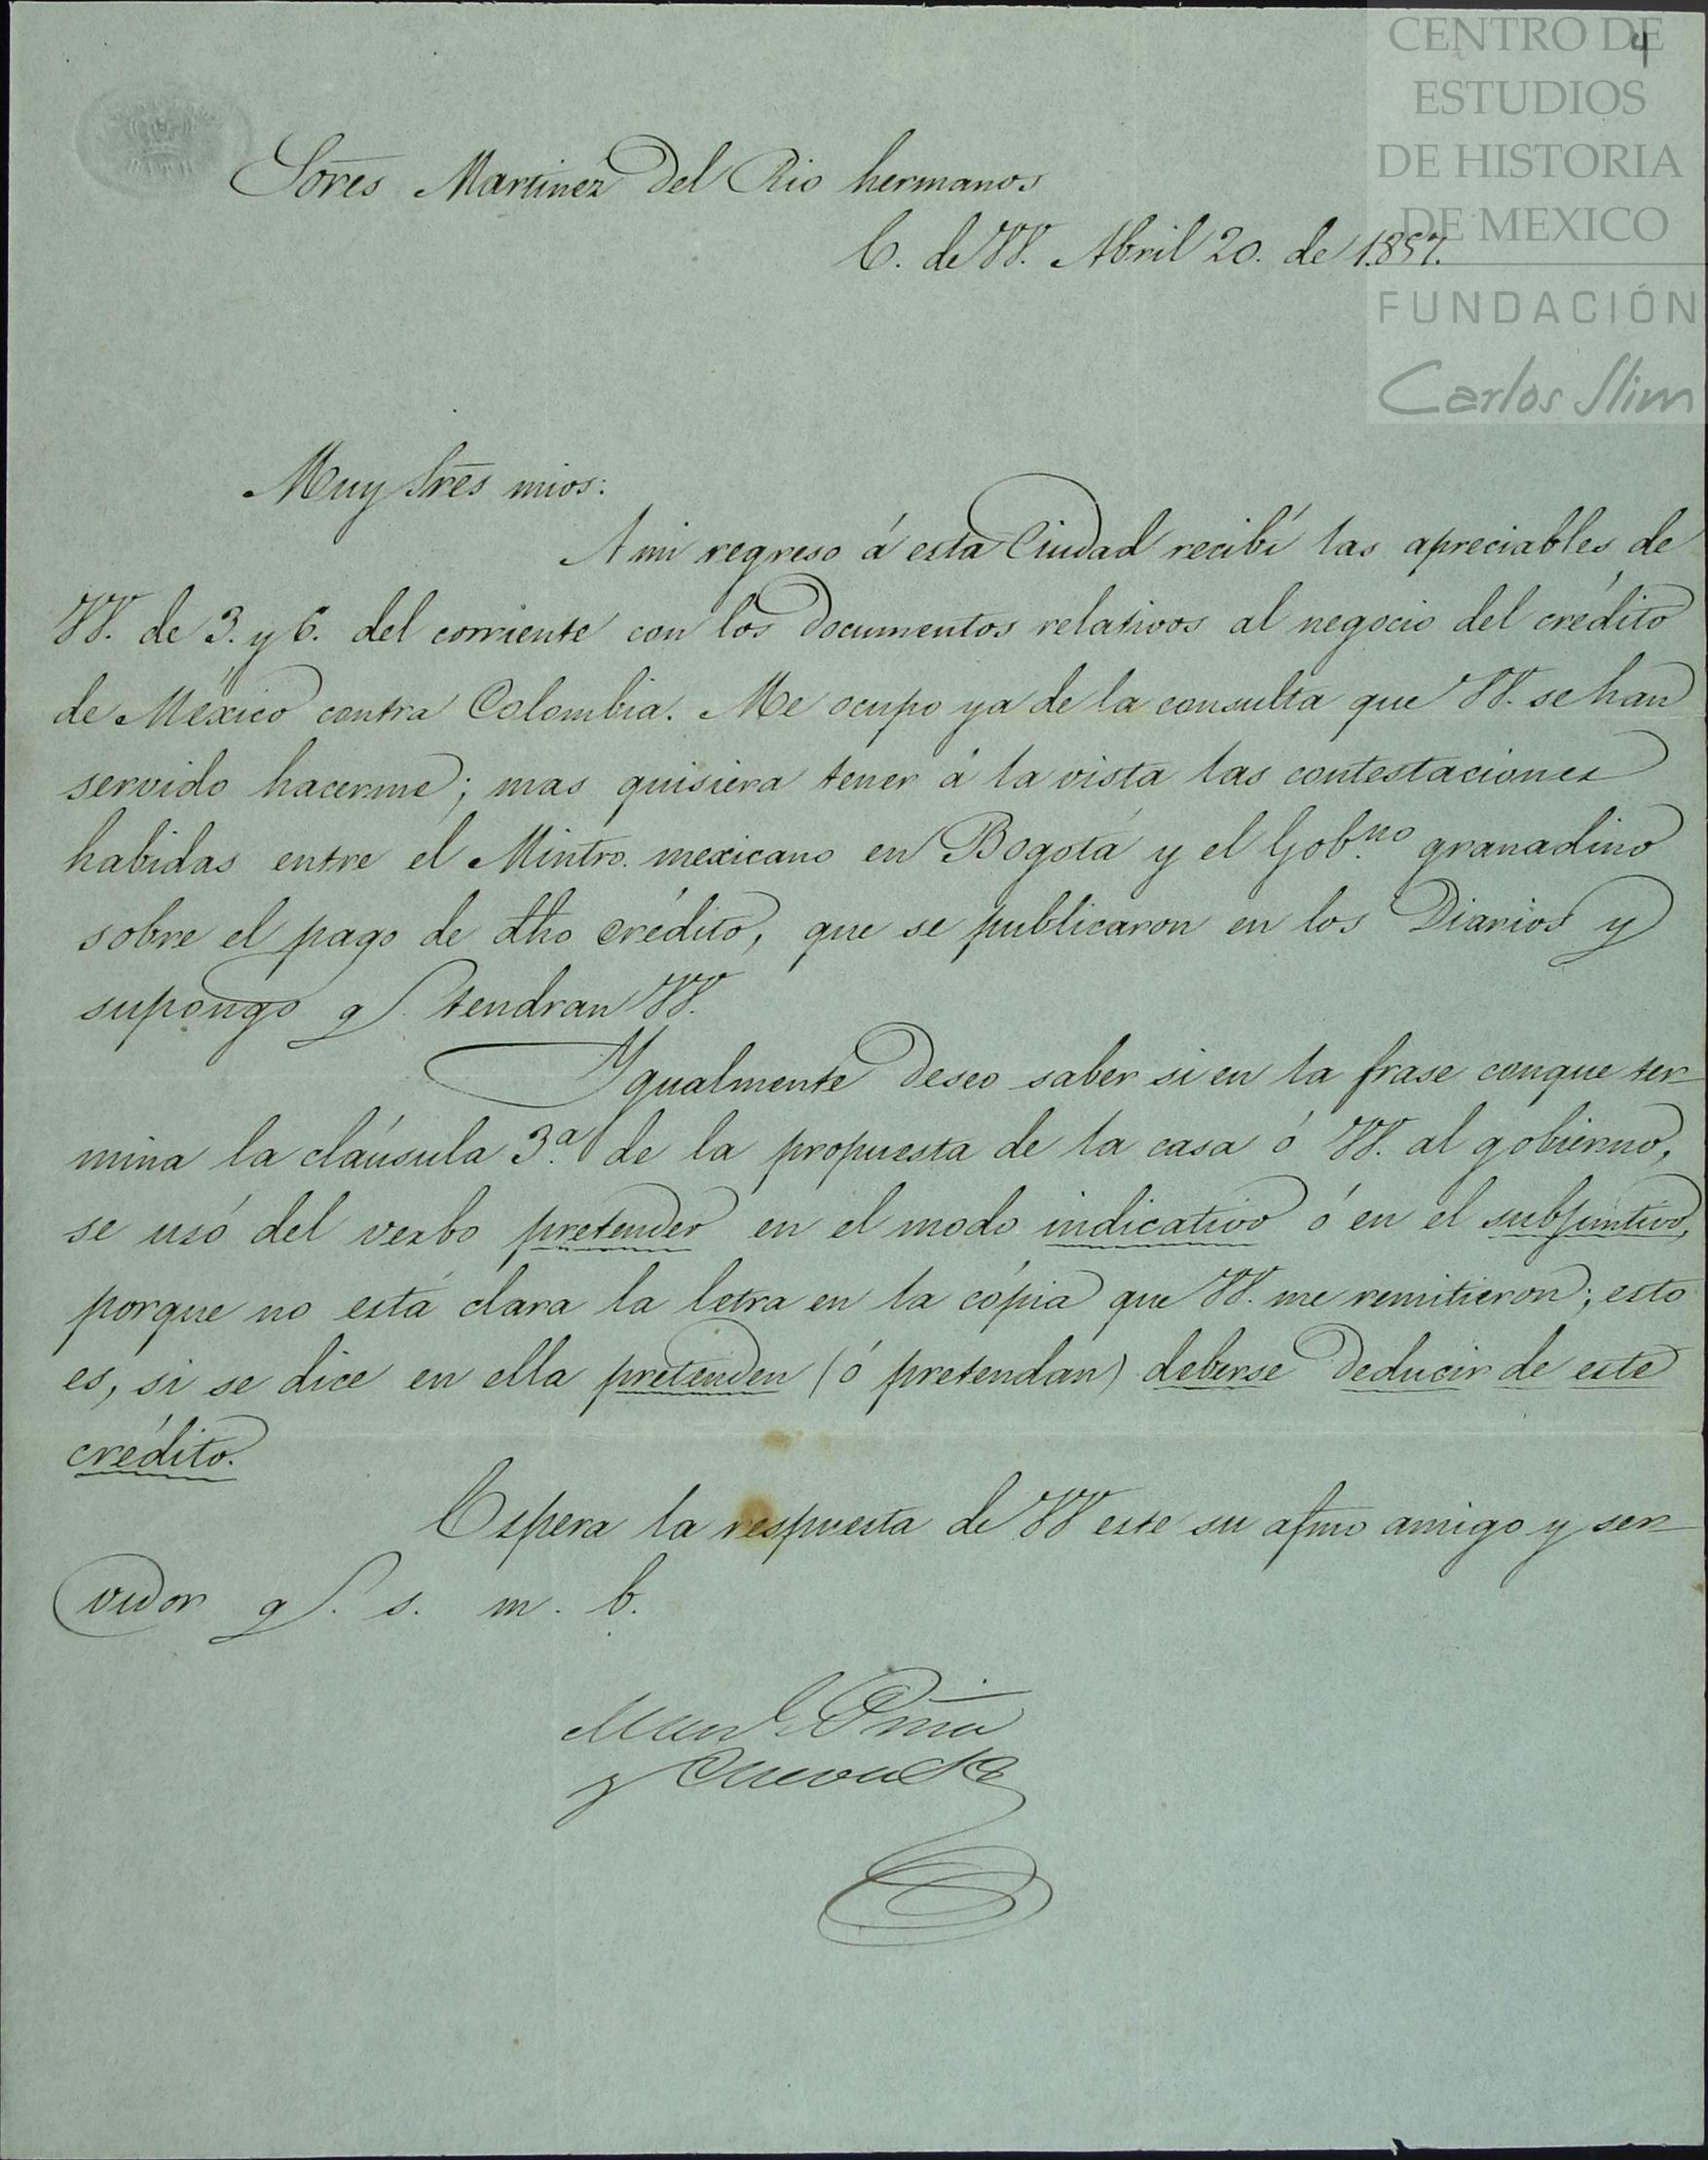 4
CENTRO DE
ESTUDIOS
DE HISTORIA
DE MEXICO
FUNDACIÓN
Carlos Slim
Sores Martinez del Rio hermanos
C. de VV. Abril 20. de 1.857.
Muy Sres mios:
A mi regreso á esta Ciudad recibí las apreciables de
VV. de 3. y 6. del corriente con los documentos relativos al negocio del crédito
de México contra Colombia. Me ocupo ya de la consulta que VV. se han
servido hacerme; mas quisiera tener á la vista las contestaciones
habidas entre el Mintro. mexicano en Bogotá y el Gob.no granadino
sobre el pago de dho crédito, que se publicaron en los Diarios y
supongo q. tendran VV.
Ygualmente deseo saber si en la frase conque ter-
mina la cláusula 3.a de la propuesta de la casa ó VV. al gobierno,
se usó del verbo pretender en el modo indicativo ó en el subjuntivo,
porque no está clara la letra en la cópia que VV. me remitieron; esto
es, si se dice en ella pretenden (ó pretendan) deberse deducir de este
crédito.
Espera la respuesta de VV este su afmo amigo y ser-
vidor q. s. m. b.
Man.l Piña
y Cuevas